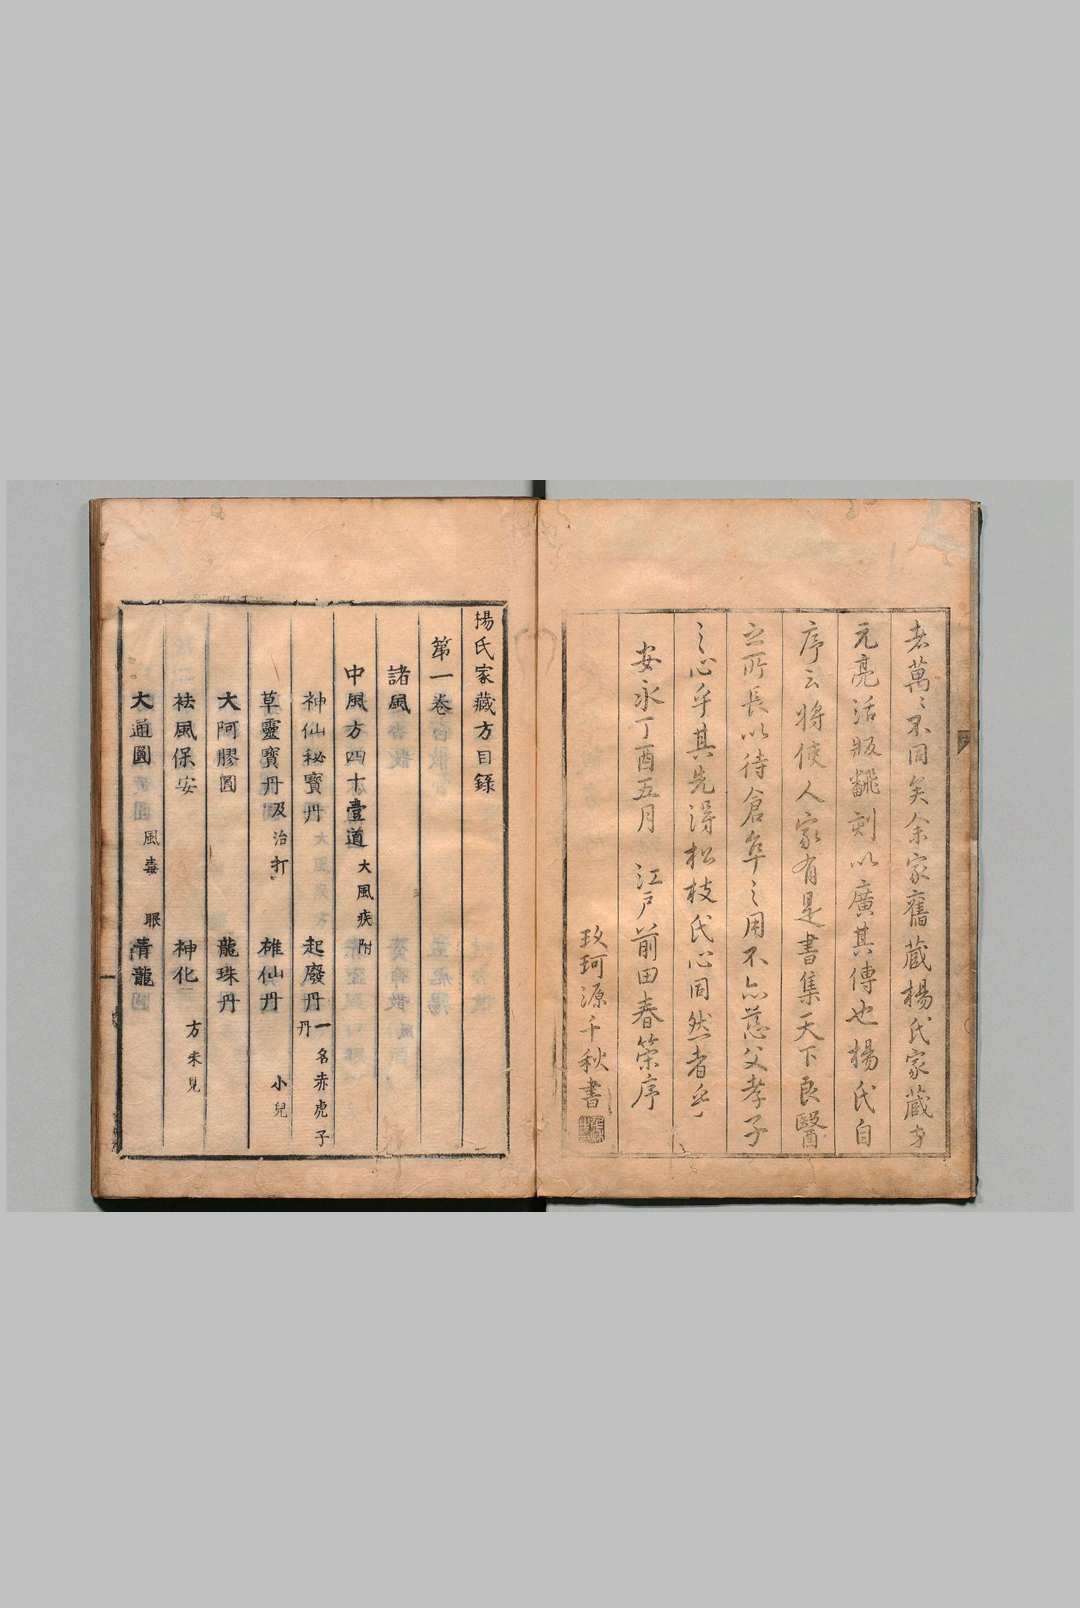 者萬〻不同矣余家舊蔵楊氏家蔵方
元亮活版翻刻以廣其傳也楊氏自
序云將使人家有是書集天下良醫
之所長以待倉卒之用不亦慈父孝子
之心乎其先得松枝氏心同然者乎
安永丁酉五月 江戸前田春策序
玖珂源千秋書
楊氏家藏方目録
第一卷
諸風
中風方四十壹道 大風疾附
神仙秘寳丹 起廢丹 一名赤虎子丹
草靈寳丹 及治打 雄仙丹 小兒
大阿膠圓 龍珠丹
祛風保安 神化 方未見
大通圓 風毒 眼 青龍